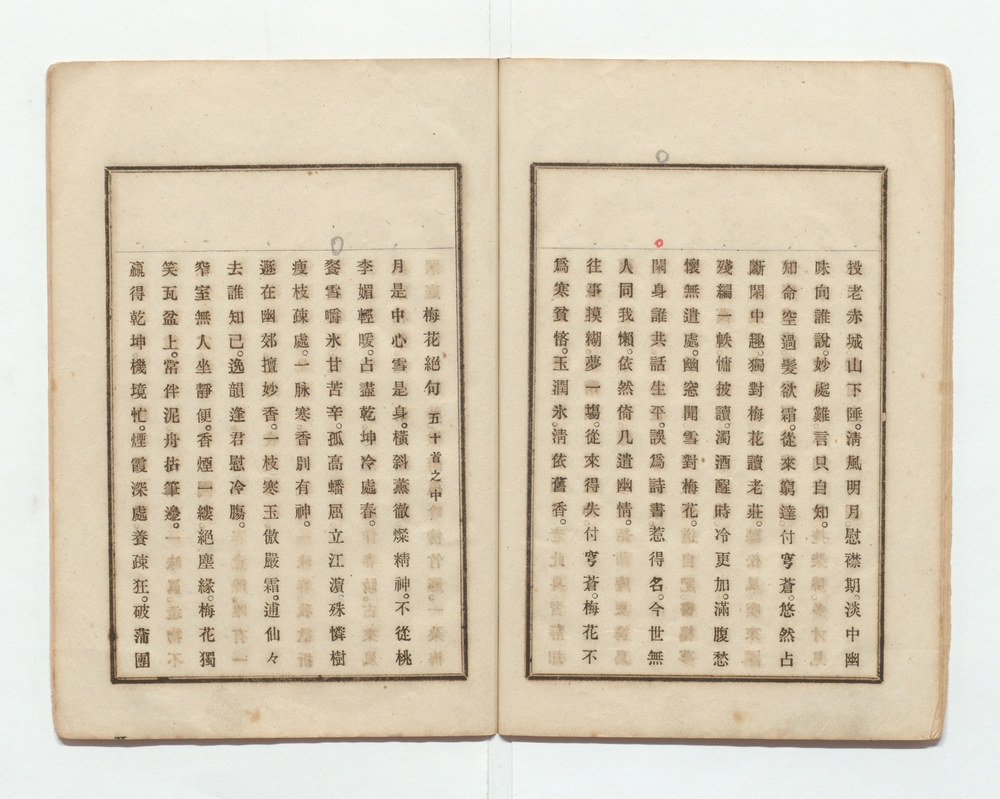 投老赤城山下陲。淸風明月慰襟期。淡中幽
味向誰說。妙處難言只自知。
知命空過髮欲霜。從來窮達付穹蒼。悠然占
斷閑中趣。獨對梅花讀老莊。
殘編一帙慵披讀。濁酒醒時冷更加。滿腹愁
懷無遣處。幽窓聞雪對梅花。
閑身誰共話生平。誤爲詩書惹得名。今世無
人同我懶。依然倚几遣幽情。
往事摸糊夢一塲。從來得失付穹蒼。梅花不
爲寒貧悋。玉潤氷淸依舊香。
梅花絕句 五十首之中
月是中心雪是身。橫斜薰徹燦精神。不從桃
李媚輕暖。占盡乾坤冷處春。
餐雪嚼氷甘苦辛。孤高蟠屈立江濵。殊憐樹
瘦枝疎處。一脉寒香別有神。
遯在幽郊擅妙香。一枝寒玉傲嚴霜。逋仙々
去誰知己。逸韻逢君慰冷膓。
窄室無人坐靜便。香煙一縷絕塵緣。梅花獨
笑瓦盆上。常伴泥舟估筆邊。
贏得乾坤機境忙。煙霞深處養疎狂。破蒲團